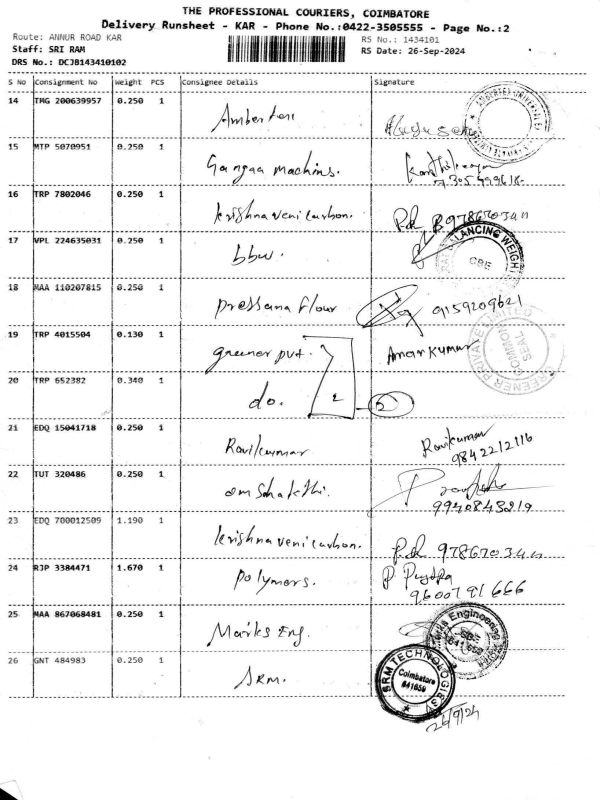 THE PROFESSIONAL COURIERS, COIMBATORE
Delivery Runsheet - KAR - Phone No.:0422-3505555 - Page No.:2
Route: ANNUR ROAD KAR
RS No.: 1434101
Staff: SRI RAM
RS Date: 26-Sep-2024
DRS No.: DCJB143410102
S No Consignment No Weight PCS Consignee Details Signature
14 TMG 200639957 0.250 1
15 MTP 5070951 0.250 1 Gangaa machins. Karthikeyan
16 TRP 7802046 0.250 1 krishnaveni carbon.
17 VPL 224635031 0.250 1 bbw.
LANCING WEIGH
CBE
18 MAA 110207815 0.250 1 pressana flour 9159209621
19 TRP 4015504 0.130 1 greener pvt. Anarkumar
GREENER PRIVATE LIMITED
COMMON SEAL
20 TRP 652382 0.340 1 do. 2
21 EDQ 15041718 0.250 1 Ravikumar Ravikumar
9842212116
22 TUT 320486 0.250 1 om Shakthi.
9940843219
23 EDQ 700012509 1.190 1 krishnaveni carbon.
24 RJP 3384471 1.670 1 polymers. P Pushpa
9600791666
25 MAA 867068481 0.250 1 Marks Eng.
Marks Engineering
26 GNT 484983 0.250 1 SRM.
SRM TECHNOLOGIES
Coimbatore
641659
26/9/24